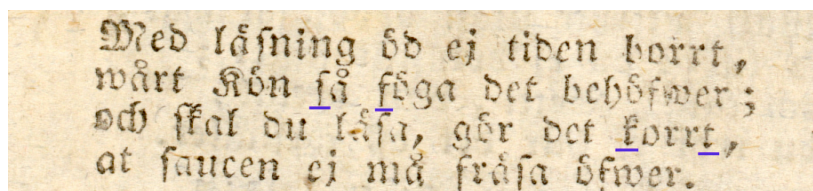 Med läsning öd ej tiden borrt,
wårt Kön så föga det behöfwer;
och skal du läsa, gör det korrt,
at saucen ej må fräsa öfwer.